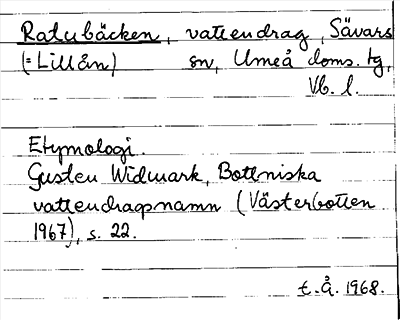 Ratubäcken, vattendrag, Sävars
(= Lillån) sn, Umeå doms. tg,
Vb. l.
Etymologi.
Gusten Widmark, Bottniska
vattendragsnamn (Västerbotten
1967), s. 22.
t. Å. 1968.